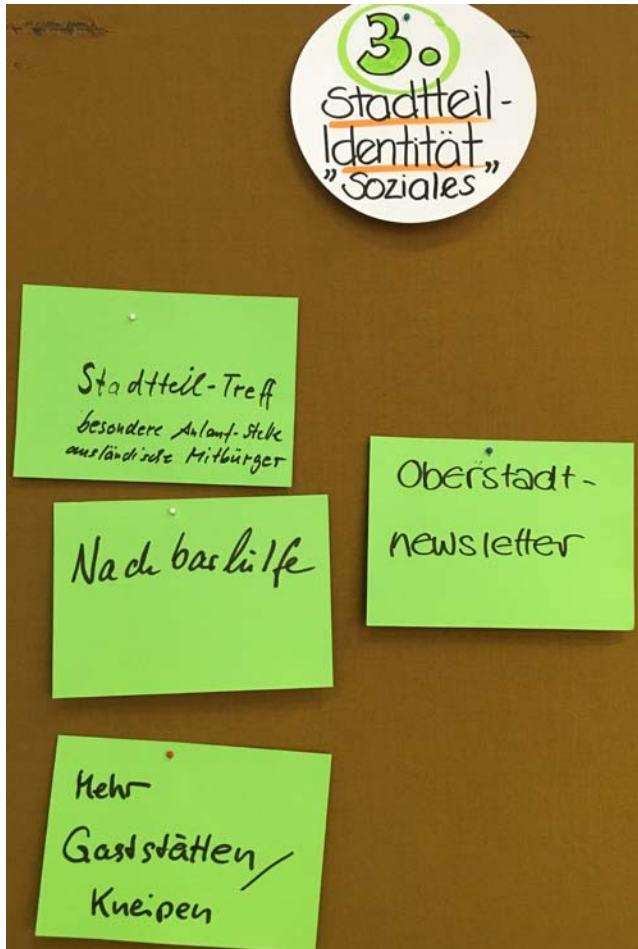 3.
Stadtteil-
Identität
"Soziales"
Stadtteil-Treff
besondere Anlauf-Stelle
ausländische Mitbürger
Nachbarhilfe
Oberstadt-
newsletter
Mehr
Gaststätten/
Kneipen